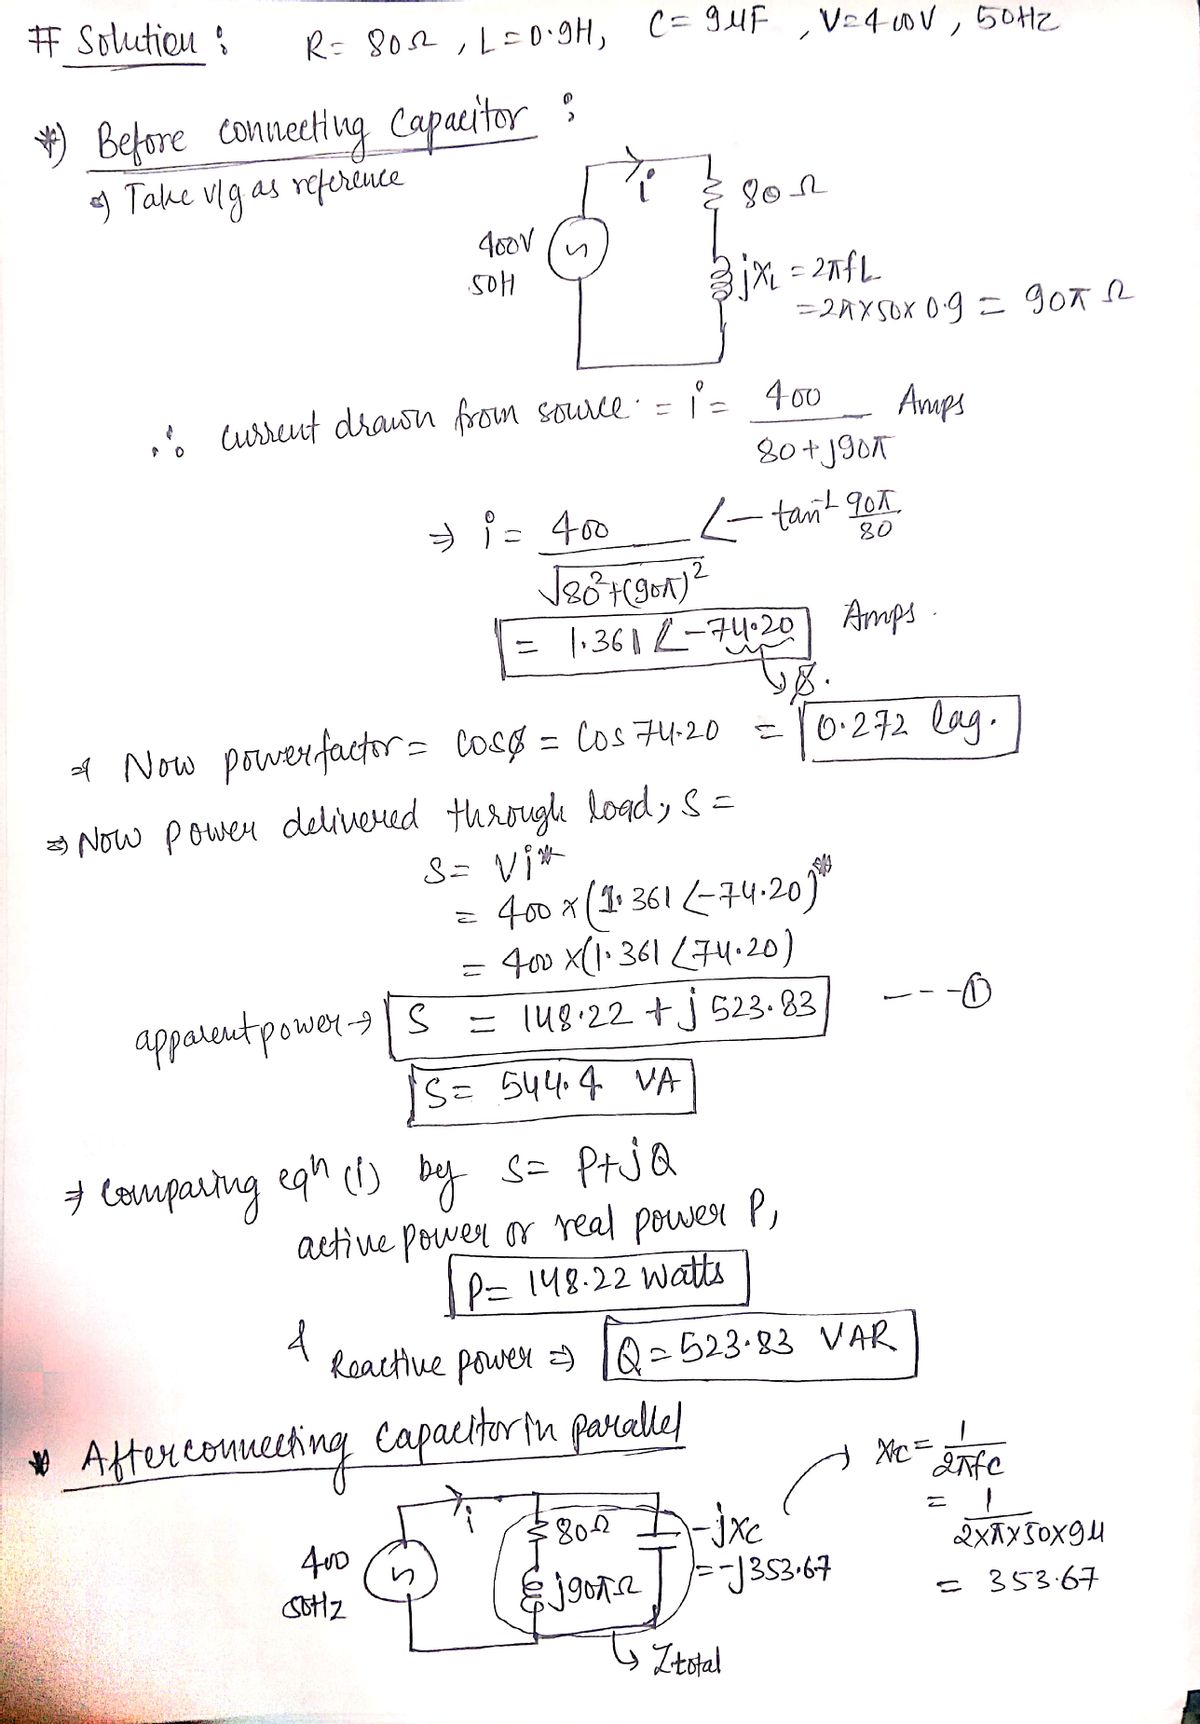 # Solution : R = 80Ω , L = 0.9H, C = 9μF , V = 400V , 50Hz
*) Before connecting Capacitor :
⇒ Take v/g as reference
i
80Ω
400V
50H
jXL = 2πfL
= 2π×50×0.9 = 90π Ω
∴ current drawn from source. = i = 400 / 80+j90π Amps
⇒ i = 400 / √80²+(90π)² ∠-tan⁻¹ 90π/80
= 1.361 ∠-74.20 Amps.
↳ ϕ.
⇒ Now powerfactor = cosϕ = Cos 74.20 = 0.272 lag.
⇒ Now power delivered through load, S =
S = Vi*
= 400 × (1.361 ∠-74.20)*
= 400 ×(1.361 ∠74.20)
apparent power → S = 148.22 + j 523.83 ---①
S = 544.4 VA
⇒ Comparing eqn (i) by S = P+jQ
active power or real power P,
P = 148.22 Watts
& Reactive power ⇒ Q = 523.83 VAR
* After connecting Capacitor in parallel
→ Xc = 1/2πfc
= 1/2×π×50×9μ
= 353.67
i
400
50Hz
80Ω
j90πΩ
-jXc
= -j353.67
↳ Ztotal